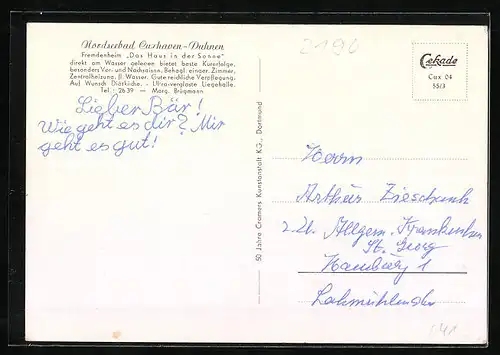 Nordseebad Cuxhaven-Duhnen
Fremdenheim „Das Haus in der Sonne"
direkt am Wasser gelegen bietet beste Kurerfolge,
besonders Vor- und Nachsaison. Behagl. einger. Zimmer,
Zentralheizung, fl. Wasser. Gute reichliche Verpflegung.
Auf Wunsch Diätküche. - Ultraverglaste Liegehalle.
Tel.: 2639 — Marg. Brügmann
Lieber Bär!
Wie geht es dir? Mir
geht es gut!
50 Jahre Cramers Kunstanstalt KG., Dortmund
2190
Cekade
Cux 04
55/3
Herrn
Arthur Zieschank
z. Zt. Allgem. Krankenhs
St. Georg
Hamburg 1
Lohmühlenstr